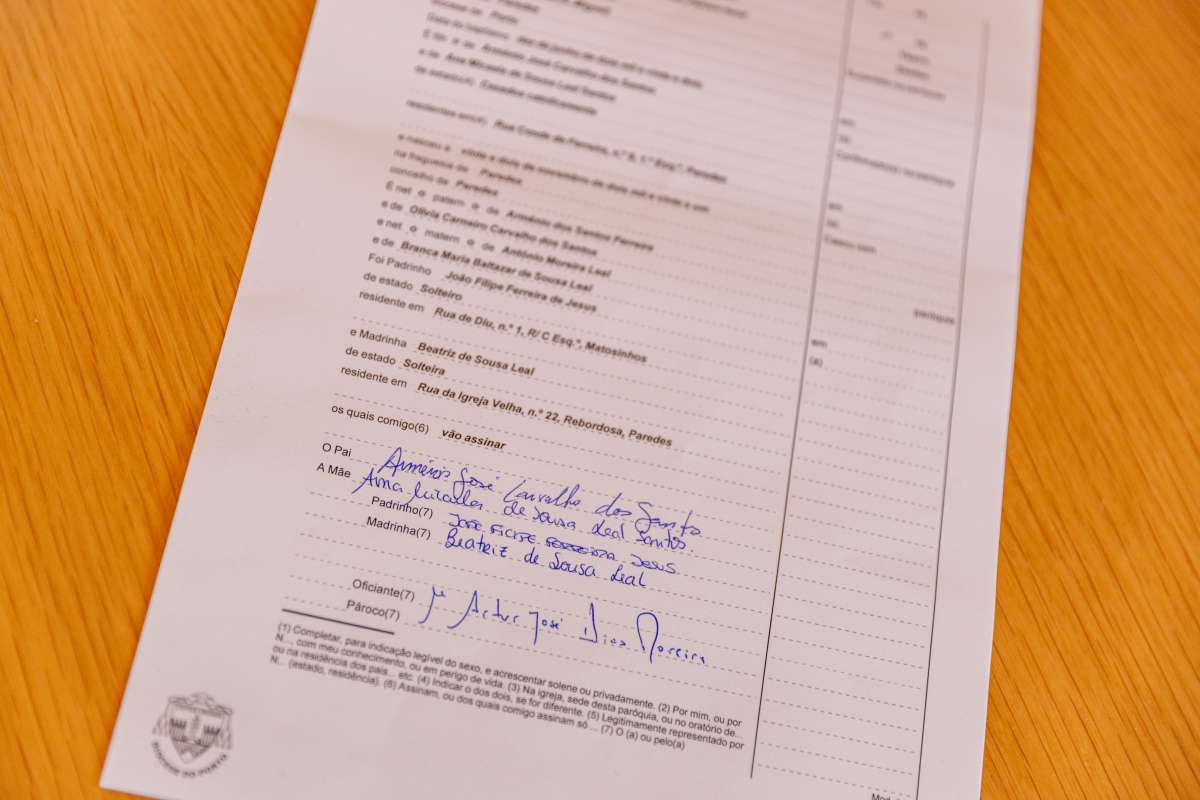 Data do baptismo dois de junho de dois mil e vinte e dois
É filho de Arménio José Carvalho dos Santos
e de Ana Micaela de Sousa Leal Santos
de estado(4) Casados catolicamente
residentes em(4) Rua Conde de Ferreira, n.º 8, 1.º Esq.º, Paredes
e nasceu a vinte e dois de novembro de dois mil e vinte e um
na freguesia de Paredes
concelho de Paredes
É net o patern o de Arménio dos Santos Ferreira
e de Olívia Carneiro Carvalho dos Santos
e net o matern o de António Moreira Leal
e de Branca Maria Baltazar de Sousa Leal
Foi Padrinho João Filipe Ferreira de Jesus
de estado Solteiro
residente em Rua de Diu, n.º 1, R/ C Esq.º, Matosinhos
e Madrinha Beatriz de Sousa Leal
de estado Solteira
residente em Rua da Igreja Velha, n.º 22, Rebordosa, Paredes
os quais comigo(6) vão assinar
O Pai Arménio José Carvalho dos Santos
A Mãe Ana Micaela de Sousa Leal Santos
Padrinho(7) Ferreira Jesus
Madrinha(7) Beatriz de Sousa Leal
Oficiante(7)
Pároco(7) José Dias Moreira
(1) Completar, para indicação legível do sexo, e acrescentar solene ou privadamente. (2) Por mim, ou por
N..., com meu conhecimento, ou em perigo de vida. (3) Na igreja, sede desta paróquia, ou no oratório de...
ou na residência dos pais... etc. (4) Indicar o dos dois, se for diferente. (5) Legitimamente representado por
N... (estado, residência). (6) Assinam, ou dos quais comigo assinam só .... (7) O (a) ou pelo(a)
DIOCESE DO PORTO
em
Confirmado(a) na paróquia
em
Casou com
paróquia
em
(a)
Mod.